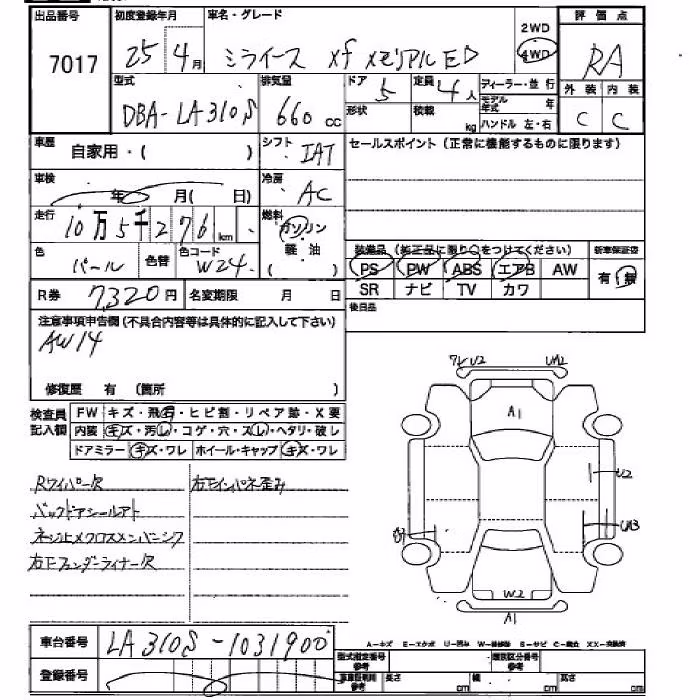 出品番号 初度登録年月 車名・グレード 2WD 評価点
7017 25年4月 ミライース xf メモリアルED 4WD RA
型式 排気量 ドア 定員 ディーラー・並行 外装 内装
DBA-LA310S 660cc 5 4人 モデル年式 年 C C
形状 積載 kg ハンドル 左・右
車歴 自家用・( ) シフト IAT セールスポイント(正常に機能するものに限ります)
車検 年 月( 日) 冷房 AC
走行 10万5千276km 燃料 ガソリン
軽油
( )
色 パール 色替 色コード W24 装備品(純正品に限り○をつけてください) 新車保証書
PS PW ABS エアB AW 有・無
R券 7,320円 名変期限 月 日 SR ナビ TV カワ
注意事項申告欄(不具合内容等は具体的に記入して下さい) 後日品
AW14
修復歴 有 (箇所 )
検査員記入欄 FW キズ・飛石・ヒビ割・リペア跡・X要
内装 キズ・汚レ・コゲ・穴・スレ・ヘタリ・破レ
ドアミラー キズ・ワレ ホイール・キャップ キズ・ワレ
Rワイパー欠 右下インパネ歪み
バックドアシールアト
ネジ止メクロスメンバーシフ
右下フェンダーライナー欠
U2
A1
U2
W2
A1
車台番号 LA310S-1031900
登録番号
A-キズ E-エクボ U-凹み W-補修跡 S-サビ C-腐食 XX-交換済
型式指定番号 参考 類別区分番号 参考
長さ cm 幅 cm 高さ cm